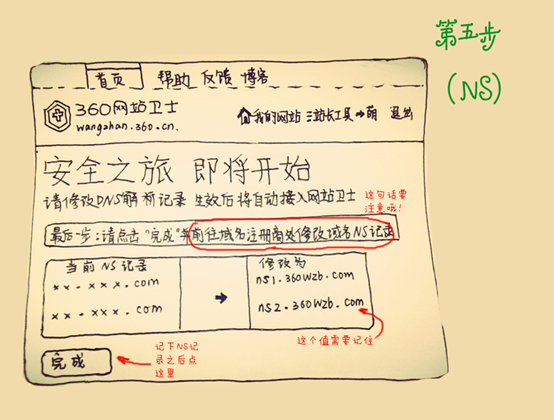 第五步
(NS)
首页 帮助 反馈 博客
360网站卫士
wangzhan.360.cn.
我的网站 站长工具 萌 退出
安全之旅 即将开始
请修改DNS解析记录 生效后将自动接入网站卫士
这句话要
注意哦!
最后一步:请点击"完成"并前往域名注册商处修改域名NS记录
当前NS记录
修改为
xx-xxx.com
ns1.360wzb.com
xx-xxx.com
ns2.360wzb.com
这个值需要记住
完成
记下NS记
录之后点
这里